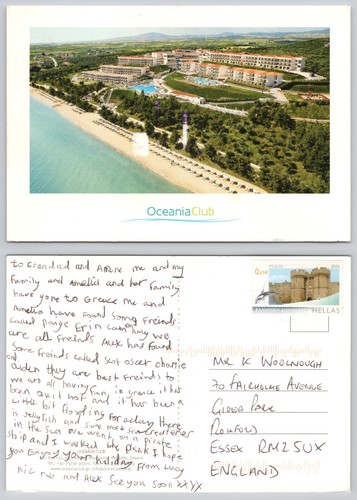 OceaniaClub
to Grandad and Anne me and my
Family and Amelia and her Family
have gone to Greece me and
Amelia have Found some Freinds
called Paige Erin
are all Freinds Alex has Found
Some Freinds called Scot oscar charlie
aiden they are best Freinds to
we are all having Fun, in greece it has
been quit hot and it has been a
little bit flooding For a clean there
is Jellyfish and Sum
in the Sea we went on a pirate
Ship and I walked the Plank I hope
you Enjoy your holiday From Lucy
nic and Alex See you Soon xxyx
HELLAS
MR K WOOLNOUGH
70 FAIRHOLME AVENUE
GIDEA PARK
ROMFORD
ESSEX RM2 5UX
ENGLAND